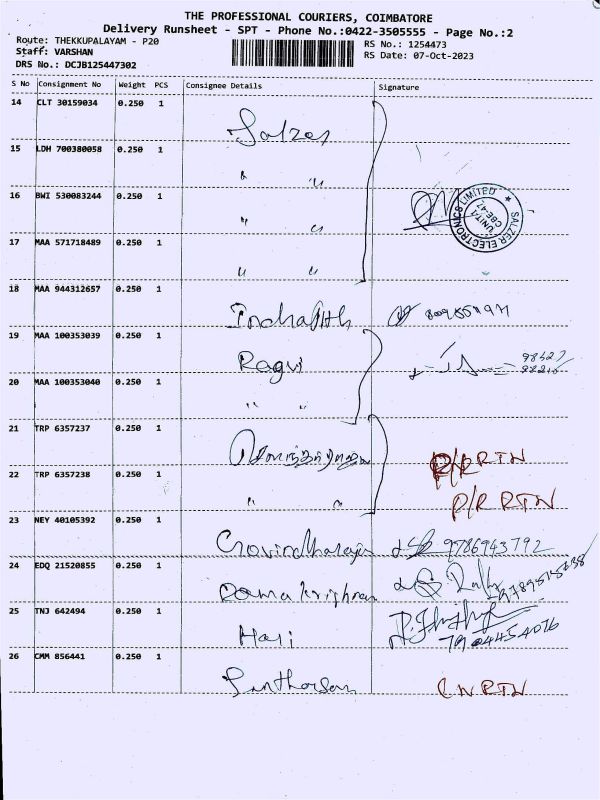 THE PROFESSIONAL COURIERS, COIMBATORE
Delivery Runsheet - SPT - Phone No.:0422-3505555 - Page No.:2
Route: THEKKUPALAYAM - P20
RS No.: 1254473
Staff: VARSHAN
RS Date: 07-Oct-2023
DRS No.: DCJB125447302
S No Consignment No Weight PCS Consignee Details Signature
14 CLT 30159034 0.250 1
Salzer
15 LDH 700380058 0.250 1
" "
16 BWI 530083244 0.250 1
" "
SALZER ELECTRONICS LIMITED
UNIT-1
CBE-47
17 MAA 571718489 0.250 1
" "
18 MAA 944312657 0.250 1
19 MAA 100353039 0.250 1
Ragui
20 MAA 100353040 0.250 1
" "
21 TRP 6357237 0.250 1
P/R RTN
22 TRP 6357238 0.250 1
" "
P/R RTN
23 NEY 40105392 0.250 1
Govindharajan 9786943792
24 EDQ 21520855 0.250 1
Rama krishnan
25 TNJ 642494 0.250 1
Hari 7904454076
26 CMM 856441 0.250 1